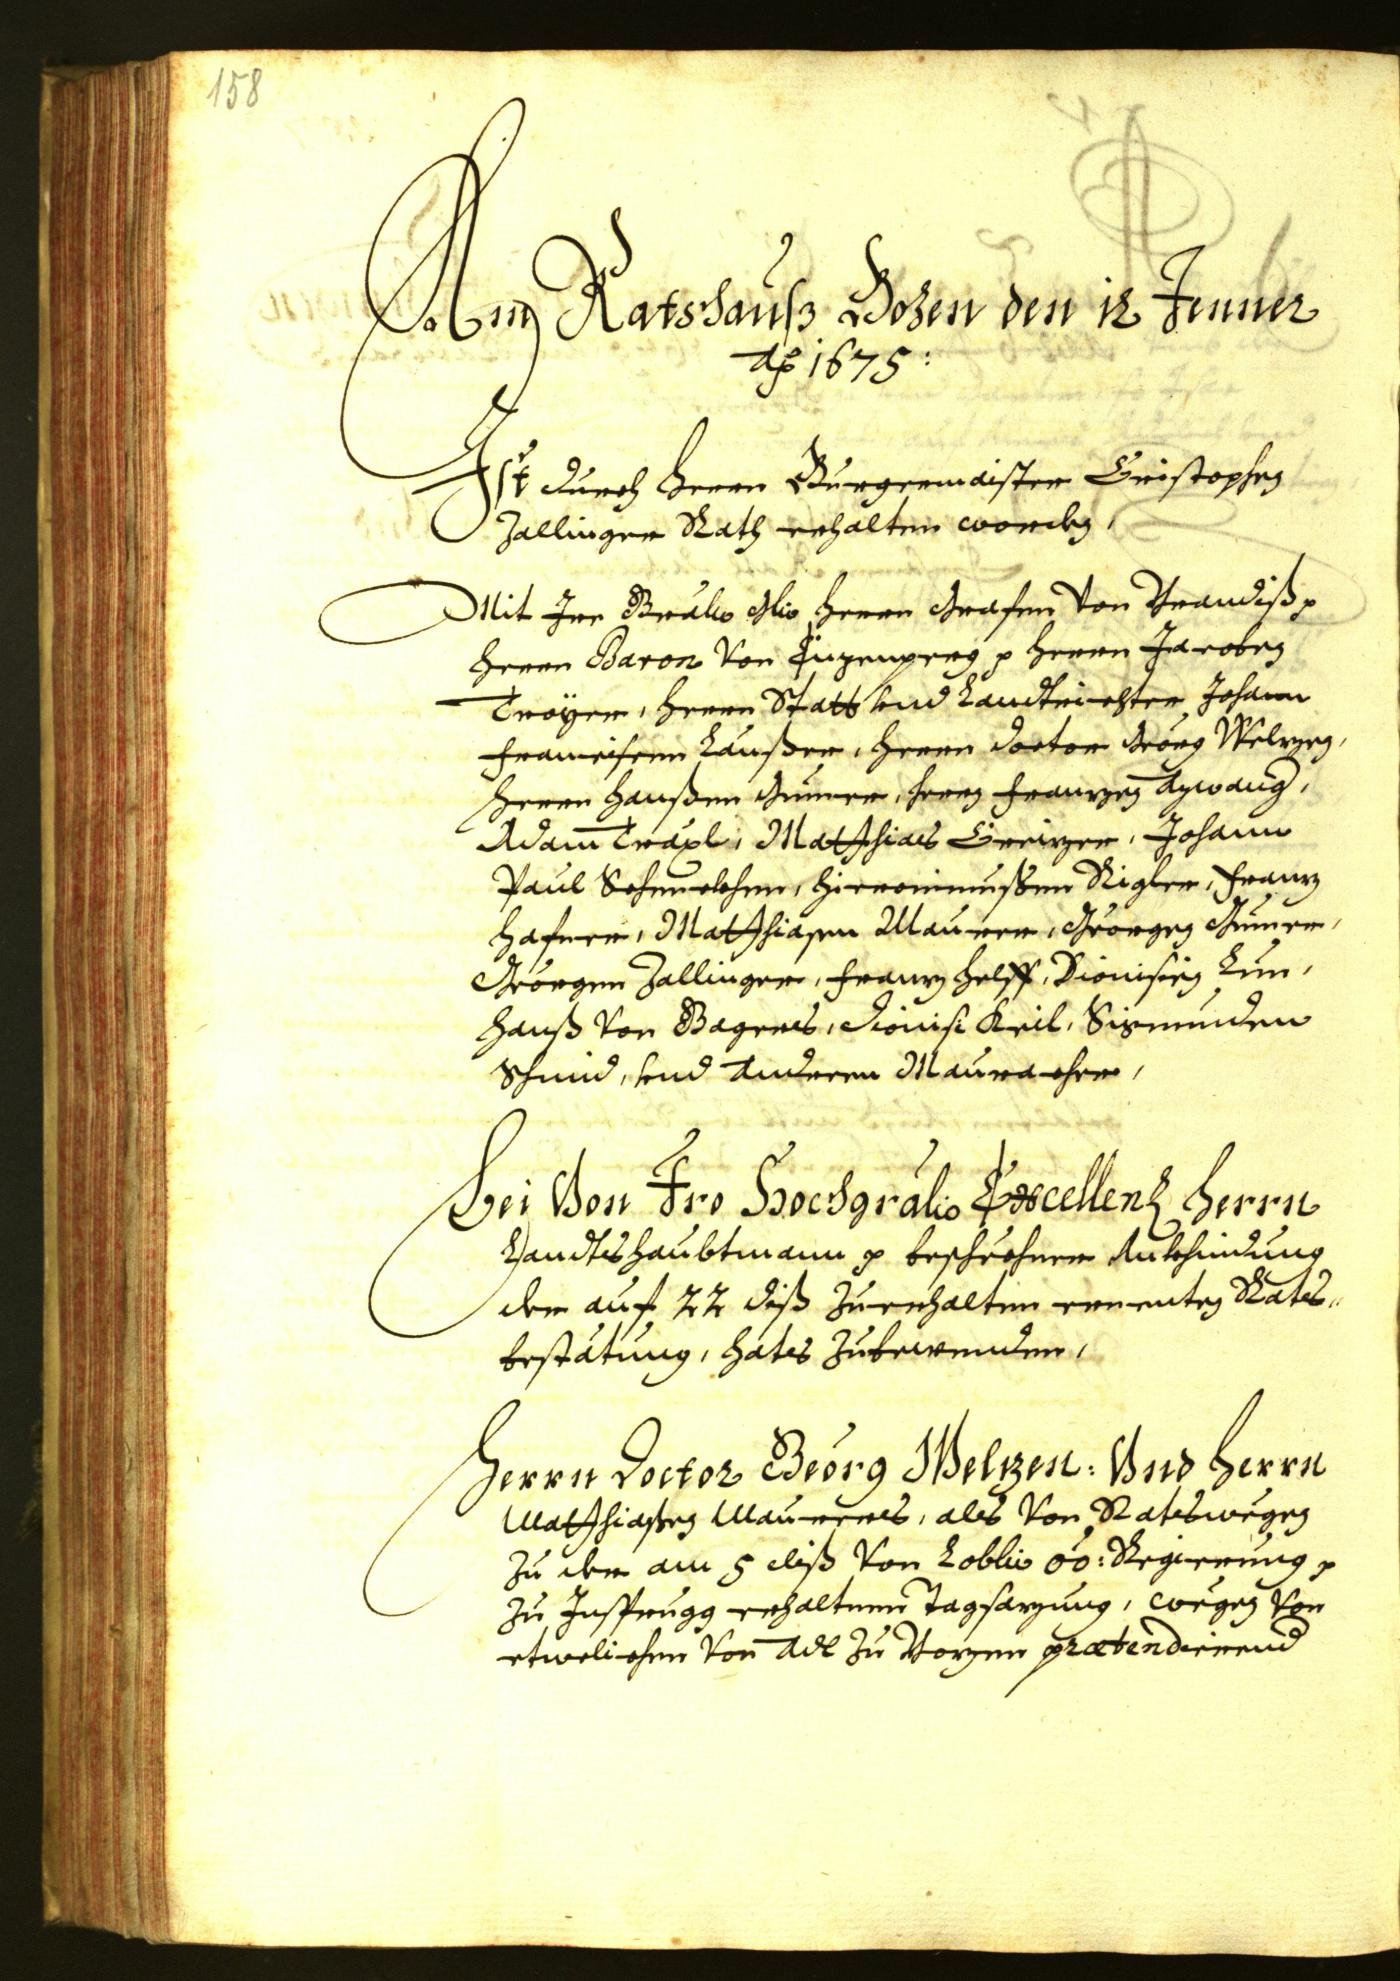 158
Am Ratshauß Bozen den 12 Jenner
Ao 1675:
Ist durch Herrn Burgermaister Cristophen
Zallinger Rath erhalten worden,
Mit Irr Gräfl Herrn Grafen von Brandiß p
Herrn Baron von p Herrn Jacoben
Troyer, Herrn Statt und Landtrichter Johann
Francisen Laußer, Herrn Doctor Georg Welzen,
Herrn Haußen Gumer, Herrn Franzen
Adam Träxl, Matthias Greizer, Johann
Paul Schneckher, Hieronimußen Rigler, Franz
Hafner, Matthiasen Maurer, Georgen Gumer,
Georgen Zallinger, Franz Helff, Dionisien
Hauß von Wagners, Dionisi Keil, Sigmunden
Schmid, und Andreen Mauracher,
Bei von Iro Hochgräflic Excellenz Herrn
Landtshaubtmann p beschechner Ankhindung
der auf 22 diß zuerhalten ernenten Rats„
bestätung, hats zubewenden,
Herrn Doctor Georg Welzen: Und Herrn
Matthiaßen Maurers, als von Ratswegen
zu der am 5 diß von Loblic oö: Regierung p
zu Insprugg erhaltnen Tagsazung, wegen von
etwelichen von Adl zu Bozen prætendierend